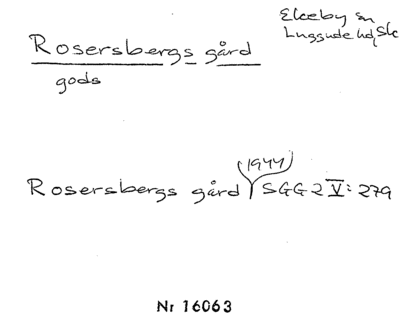 Ekeby sn
Luggude hd, Sk
Rosersbergs gård
gods
1944
Rosersbergs gård SGG 2 V: 279
Nr 16063